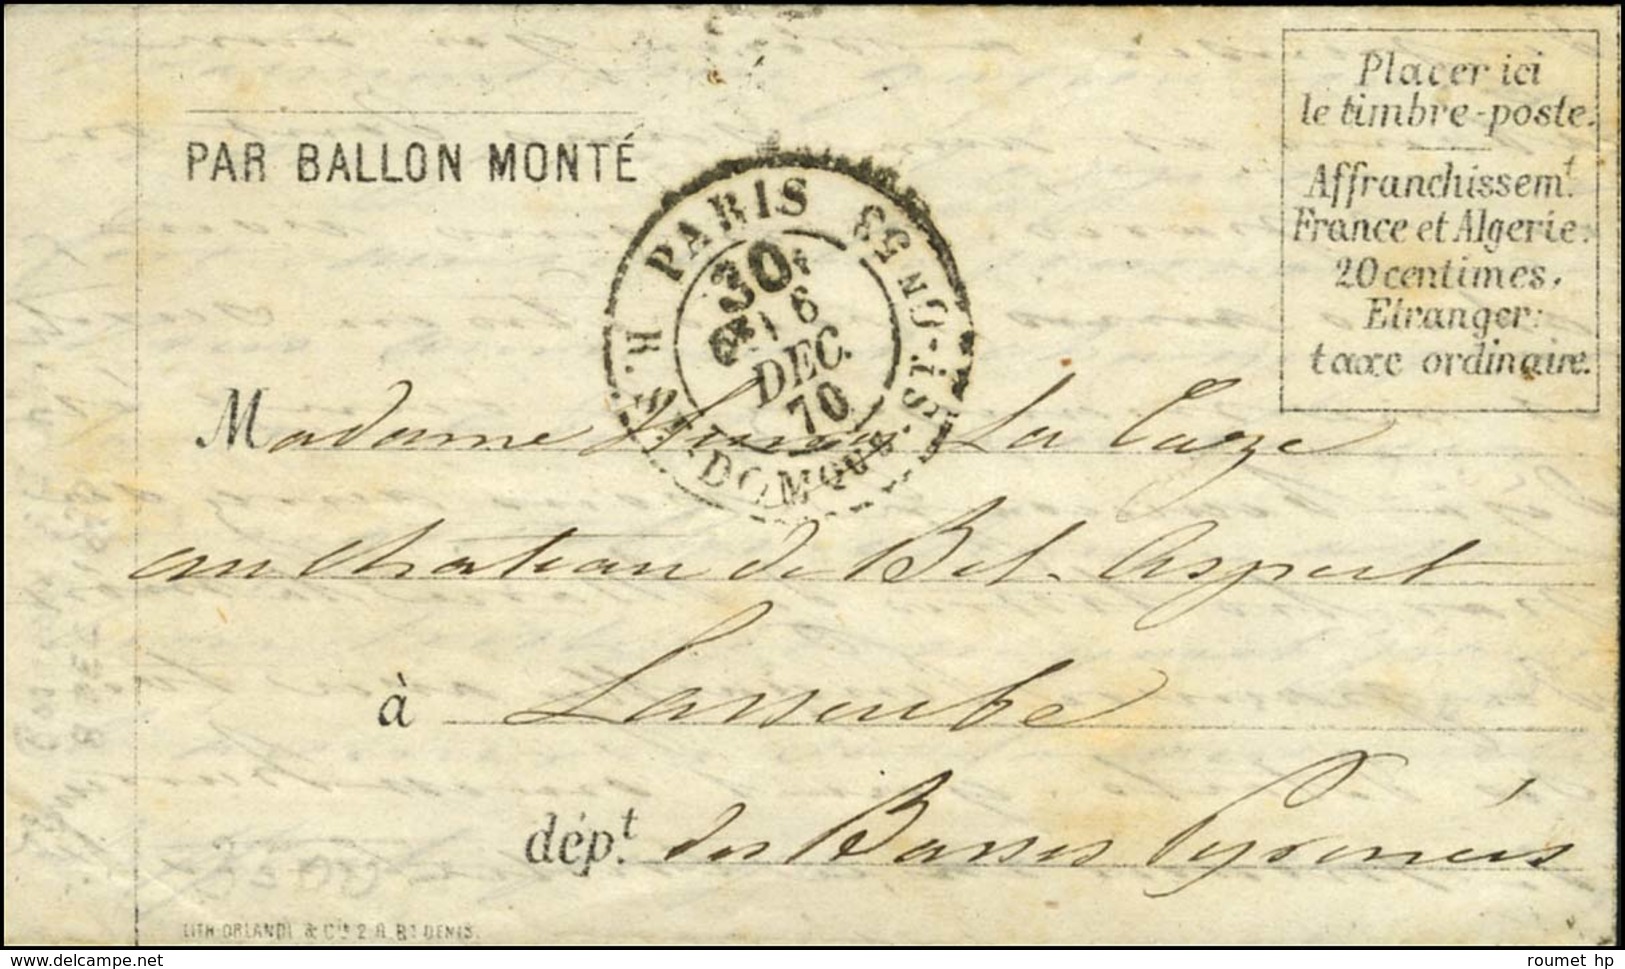 PAR BALLON MONTÉ
Placer ici
le timbre-poste.
Affranchissemt.
France et Algerie:
20 centimes.
Etranger:
taxe ordinaire.
PARIS
R. ST-DOMQUE-ST-GN 53
30
6
DEC.
70
Madame La Caze
au chateau de Bel-Aspect
à Lasseube
dépt. des Basses Pyrénées
LITH. ORLANDI & Cie 2 R. Bt DENIS.
roumet hp